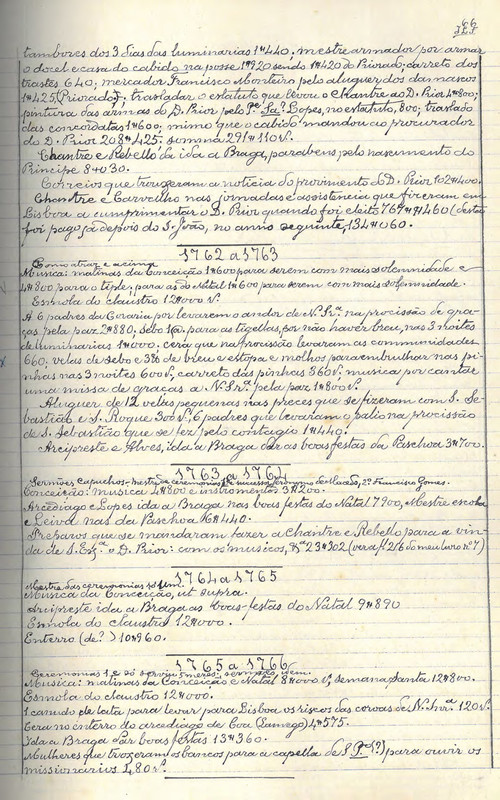 66
tambores dos 3 dias das luminarias 1$440, mestre armador por armar
o docel e casa do cabido na posse 1$920 sendo 1$420 do Priorado; carreto dos
trastes 640; mercador Francisco Monteiro pelo aluguer dos damascos
1$425 (Priorado); trasladar o estatuto que levou o Chantre ao D. Prior 4$800;
pintura das armas do D. Prior pelo Pe. Lopes, no estatuto, 800; traslado
das concordatas 1$600; mimo que o cabido mandou ao procurador
do D. Prior 208$425. Somma 291$110 v.
Chantre e Rebello da ida a Braga, parabens pelo nascimento do
Principe 8$030.
Correios que trouxeram a noticia do provimento do D. Prior 102$400.
Chantre e Carvalho nas jornadas e assistencia que fizeram em
Lisboa a cumprimentar o D. Prior quando foi eleito
foi pago já depois do S. João, no anno seguinte, 134$060.
1762 a 1763
Como atraz e acima
Musica: matinas da Conceição 1$600 para serem com mais solemnidade e
4$800 para o tiple, para as do Natal 1$600 para serem com mais solemnidade.
Esmola do claustro 12$000 v.
A 6 padres da Coraria por levarem o andor de N. Sra. na procissão de gra-
ças pela paz 2$880; sebo para as tigellas, por não haver breu, nas 3 noites
de luminarias 1$000. cera que na procissão levaram as communidades
660, velas de sebo e 3@ de breu e estopa e molhos para embrulhar nas pi-
nhas nas 3 noites 600 v., carreto das pinhas 360 v. musica por cantar
uma missa de graças a N. Sra. pela paz 1$800 v.
Aluguer de 12 velas pequenas nas preces que se fizeram com S. Se-
bastião e S. Roque 300 v., 6 padres que levaram o palio na procissão
de S. Sebastião que se fez pelo contagio 1$440.
Arcipreste e Alves, ida a Braga dar as boas festas da Paschoa 3$700.
1763 a 1764
Sermões capuchos - mestre de ceremonias Jeronimo de Macedo, 2º Francisco Gomes.
Conceição: musica 4$800 e instromentos 3$200.
Arcediago e Lopes ida a Braga nas boas festas do Natal 7900, Mestre escola
e Leiva nas da Paschoa 16$440.
Preparos que se mandaram fazer a Chantre e Rebello para a vin-
da de S. Exa. o D. Prior: com os musicos, 23$302 (vera f. 216 do meu livro nº 1)
1764 a 1765
Mestre das ceremonias idem.
Musica da Conceição, ut supra.
Arcipreste ida a Braga as boas-festas do Natal 9$890
Esmola do claustro 12$000.
Enterro (de?) 10$960.
1765 a 1766
Ceremonias 1º e só serviu 7 mezes; sermões, idem.
Musica: matinas da Conceição e Natal 8$000 v., semana santa 12$800.
Esmola do claustro 12$000.
1 canudo de lata para levar para Lisboa os riscos das coroas de N. Snra. 120 v.
Cera no interro do arcediago de Coa (Lamego) 4$575.
Ida a Braga dar boas festas 13$360.
Mulheres que trouxeram os bancos para a capella de S. (?) para ouvir os
missionarios 1,80 v.